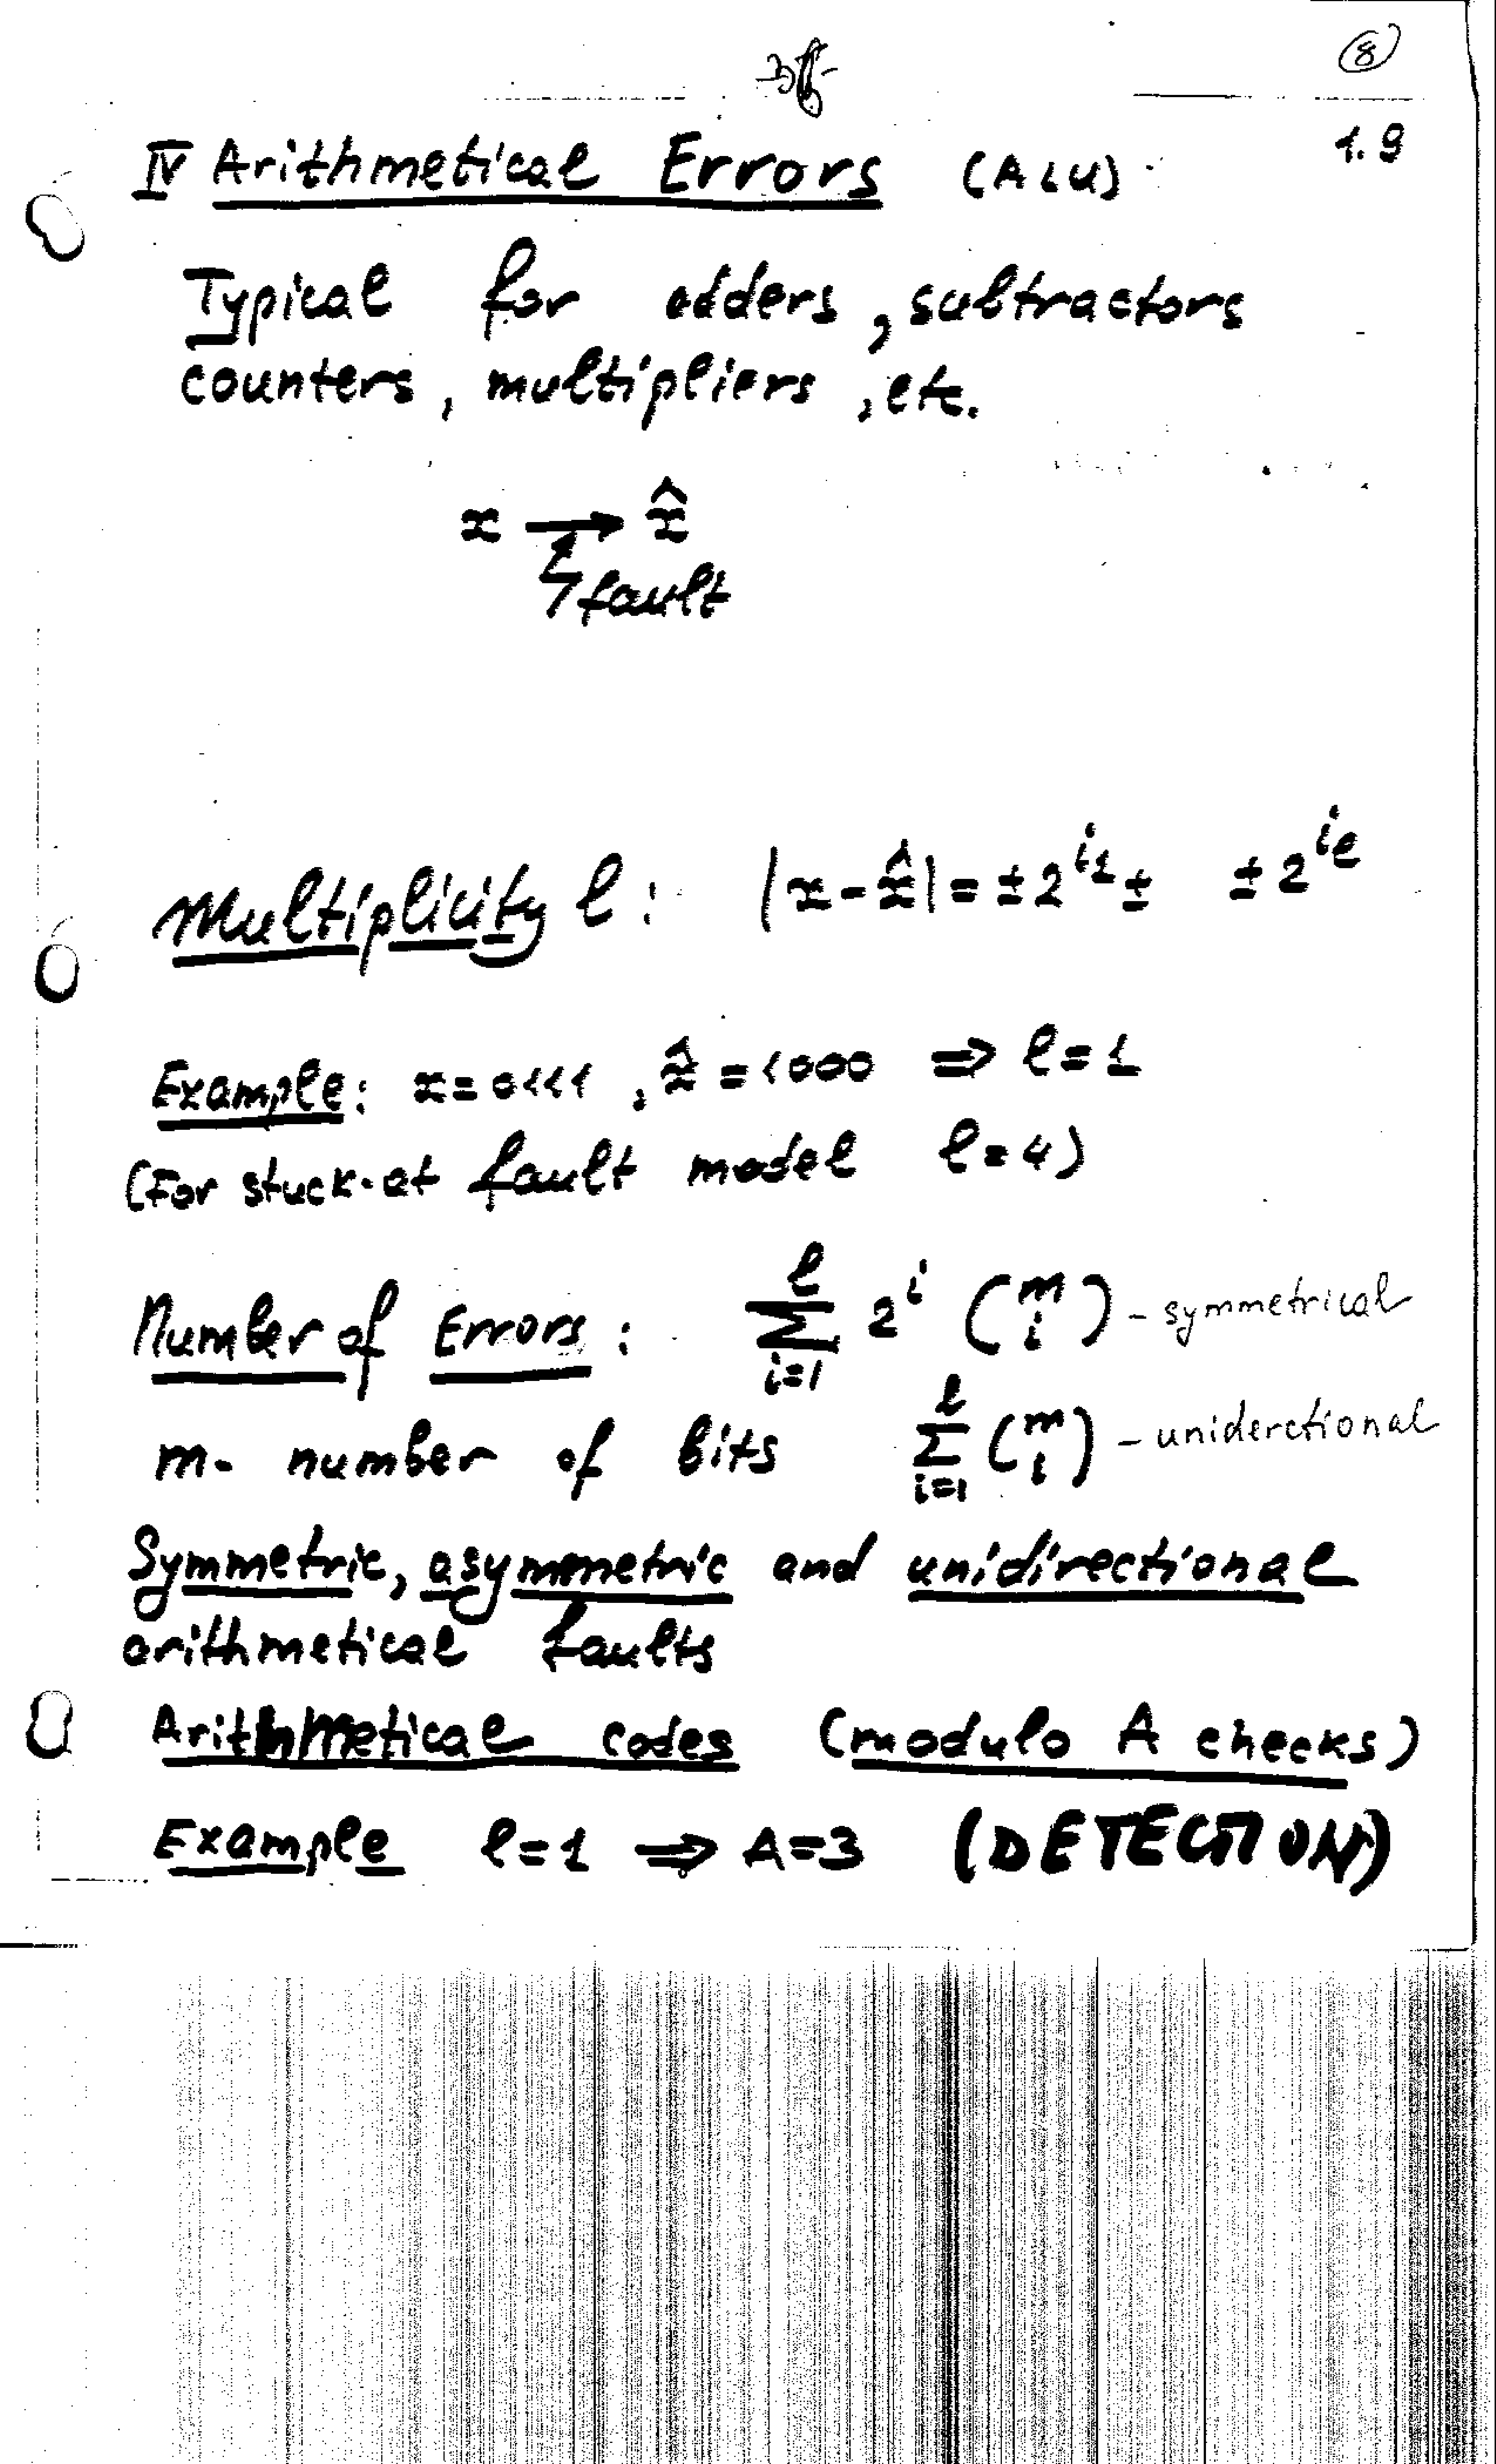 8
1.9
IV Arithmetical Errors (ALU)
Typical for adders, subtractors
counters, multipliers, etc.
x → x̂
fault
Multiplicity l: |x - x̂| = ± 2^i1 ± ± 2^il
Example: x = 0111, x̂ = 1000 ⇒ l = 1
(For stuck-at fault model l = 4)
Number of Errors: ∑_{i=1}^{l} 2^i (m i) - symmetrical
m - number of bits ∑_{i=1}^{l} (m i) - uniderctional
Symmetric, asymmetric and unidirectional
arithmetical faults
Arithmetical codes (modulo A checks)
Example l = 1 ⇒ A = 3 (DETECTION)